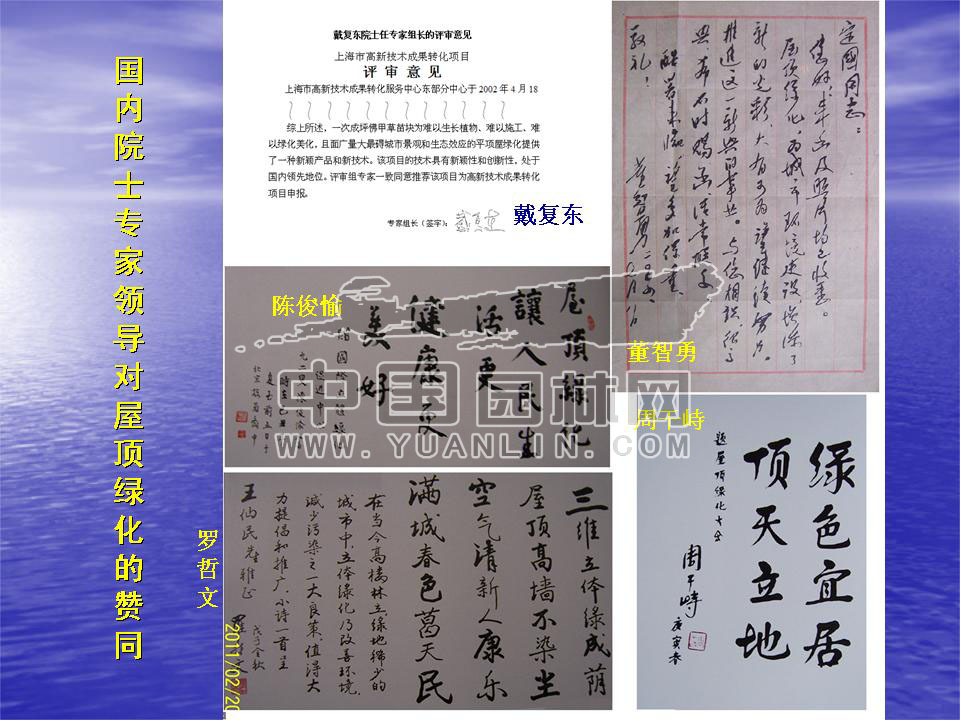 国内院士专家领导对屋顶绿化的赞同
戴复东院士任专家组长的评审意见
上海市高新技术成果转化项目
评审意见
上海市高新技术成果转化服务中心东部分中心于2002年4月18
综上所述，一次成坪佛甲草苗块为难以生长植物、难以施工、难
以绿化美化，且面广量大最碍城市景观和生态效应的平项屋绿化提供
了一种新颖产品和新技术。该项目的技术具有新颖性和创新性，处于
国内领先地位。评审组专家一致同意推荐该项目为高新技术成果转化
项目申报。
专家组长（签字）：
戴复东
定國同志：
您好！来函及照片均已收悉。
屋顶绿化，为城市环境建设，增添了
新的光彩，大有可为，望继续努力。
推进这一新兴的事业。
致礼！
董智勇
陈俊愉
屋頂綠化
讓人民生
活更
健康更
美好
中国园林网
WWW.YUANLIN.COM
周干峙
绿色宜居
顶天立地
题屋顶绿化大会
周干峙
庚寅春
罗哲文
三维立体绿成荫
屋顶高墙不染尘
空气清新人康乐
满城春色葛天民
在当今高楼林立绿地稀少的
城市中，立体绿化乃改善环境，
减少污染之一大良策，值得大
力提倡和推广，小诗一首呈
王仙民先生雅正
戊子金秋
2011/02/20